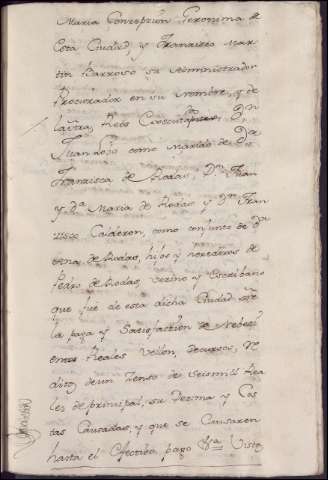 Maria Concepcion Geronima de
Esta Ciudad, y Francisco Mar
tin Barroso su Administrador
Procurador en su Nombre, y de
la otra, Reos Dn
Juan como marido de Da
Francisca de Rodas, Dn Juan
y Da Maria de Rodas y Dn Fran
cisco Calderon, como conjunto de Da
Ana de Rodas, hijos y herederos de
Pedro de Rodas, vezino y Escribano
que fue de esta dicha Ciudad
la paga y Satisfaccion de Nobeci
entos Reales vellon, decursos, Re
ditos de un Zenso de seismill Rea
les de principal, su Dezima y Cos
tas Causadas, y que se Causaren
hasta el efectibo pago Visto